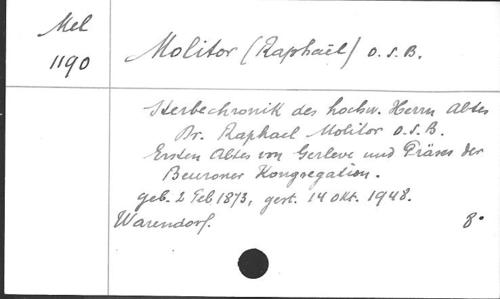 Mel
1190
Molitor (Raphaël) O.S.B.
Sterbechronik des hochw. Herrn Abtes
Dr. Raphael Molitor O.S.B.
Ersten Abtes von Gerleve und Präses der
Beuroner Kongregation.
geb. 2 Feb 1873, gest. 14 Okt. 1948.
Warendorf. 8°